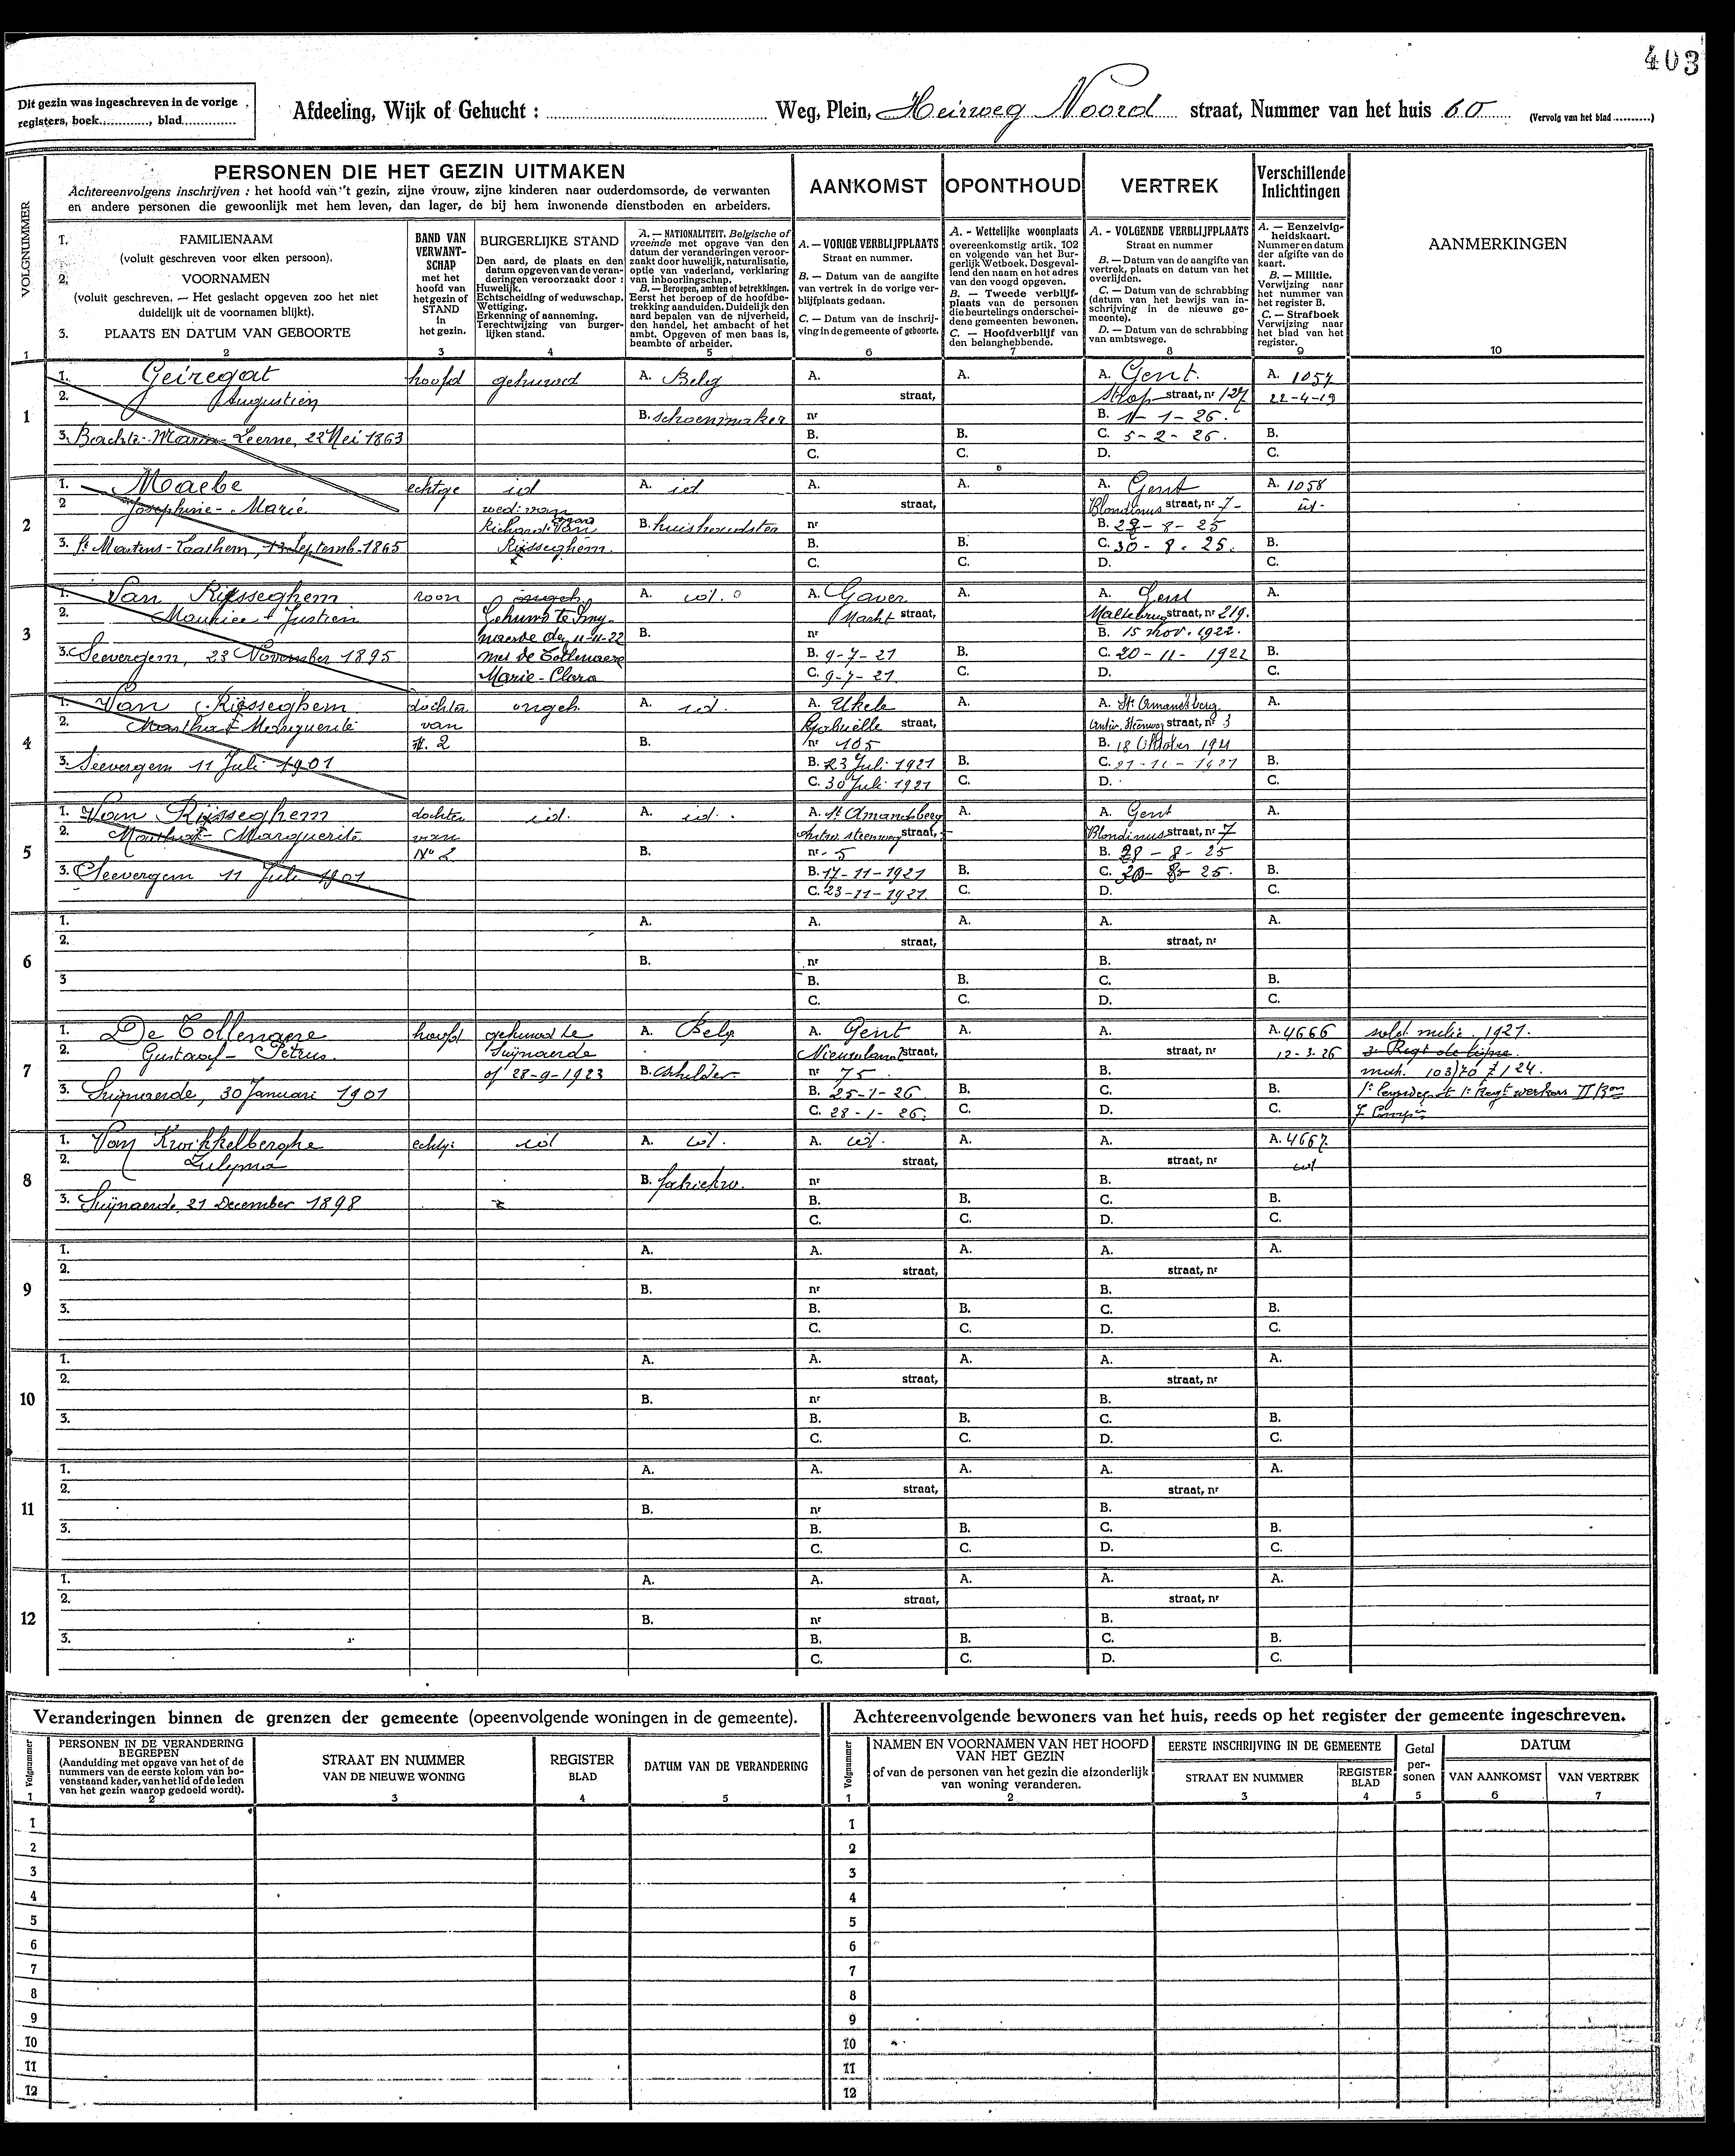 403
Dit gezin was ingeschreven in de vorige registers, boek..........., blad.............
Afdeeling, Wijk of Gehucht : Weg, Plein, Heirweg Noord straat, Nummer van het huis 60 (Vervolg van het blad ..........)
VOLGNUMMER
PERSONEN DIE HET GEZIN UITMAKEN
Achtereenvolgens inschrijven : het hoofd van 't gezin, zijne vrouw, zijne kinderen naar ouderdomsorde, de verwanten
en andere personen die gewoonlijk met hem leven, dan lager, de bij hem inwonende dienstboden en arbeiders.
AANKOMST
OPONTHOUD
VERTREK
Verschillende Inlichtingen
1. FAMILIENAAM
(voluit geschreven voor elken persoon).
2. VOORNAMEN
(voluit geschreven. — Het geslacht opgeven zoo het niet
duidelijk uit de voornamen blijkt).
3. PLAATS EN DATUM VAN GEBOORTE
BAND VAN
VERWANT-
SCHAP
met het
hoofd van
het gezin of
STAND
in
het gezin.
BURGERLIJKE STAND
Den aard, de plaats en den
datum opgeven van de veran-
deringen veroorzaakt door :
Huwelijk.
Echtscheiding of weduwschap.
Wettiging.
Erkenning of aanneming.
Terechtwijzing van burger-
lijken stand.
A. — NATIONALITEIT. Belgische of
vreemde met opgave van den
datum der veranderingen veroor-
zaakt door huwelijk, naturalisatie,
optie van vaderland, verklaring
van inboorlingschap.
B. — Beroepen, ambten of betrekkingen.
Eerst het beroep of de hoofdbe-
trekking aanduiden. Duidelijk den
aard bepalen van de nijverheid,
den handel, het ambacht of het
ambt. Opgeven of men baas is,
beambte of arbeider.
A. — VORIGE VERBLIJFPLAATS
Straat en nummer.
B. — Datum van de aangifte
van vertrek in de vorige ver-
blijfplaats gedaan.
C. — Datum van de inschrij-
ving in de gemeente of geboorte.
A. - Wettelijke woonplaats
overeenkomstig artik. 102
en volgende van het Bur-
gerlijk Wetboek. Desgeval-
lend den naam en het adres
van den voogd opgeven.
B. — Tweede verblijf-
plaats van de personen
die beurtelings onderschei-
dene gemeenten bewonen.
C. — Hoofdverblijf van
den belanghebbende.
A. - VOLGENDE VERBLIJFPLAATS
Straat en nummer
B. — Datum van de aangifte van
vertrek, plaats en datum van het
overlijden.
C. — Datum van de schrabbing
(datum van het bewijs van in-
schrijving in de nieuwe ge-
meente).
D. — Datum van de schrabbing
van ambtswege.
A. — Eenzelvig-
heidskaart.
Nummer en datum
der afgifte van de
kaart.
B. — Militie.
Verwijzing naar
het nummer van
het register B.
C. — Strafboek
Verwijzing naar
het blad van het
register.
AANMERKINGEN
1 2 3 4 5 6 7 8 9 10
1. Geiregat hoofd gehuwd A. Belg A. A. A. Gent. A. 1057
2. Augustien straat, Strop straat, nr 127 22-4-19
1 B. schoenmaker nr B. 11-1-26.
3. Bachte-Maria-Leerne, 22 Mei 1863 B. B. C. 5-2-26. B.
C. C. D. C.
1. Maebe echtge id A. id A. A. A. Gent A. 1058
2 Josephine-Marie wed: van straat, Blondinus straat, nr 7 id.
2 Richard Van B. huishoudster nr B. 28-8-25
3. St Martens-Laathem, 13 Septemb. 1865 Rijsseghem. B. B. C. 30-8-25. B.
C. C. D. C.
1. Van Rijsseghem zoon ongeh. A. id. A. Gaver A. A. Gent A.
2. Maurice Justien Gehuwd te Swy- Markt straat, Maltebrug straat, nr 219.
3 naerde den 11-11-22 B. nr B. 15 nov. 1922.
3. Seevergem, 23 November 1895 met De Tollenaere B. 9-7-21 B. C. 20-11-1922 B.
Marie-Clara C. 9-7-21. C. D. C.
1. Van Rijsseghem dochter ongeh. A. id. A. Ukele A. A. St Amandsberg A.
2. Martha Marguerite van Gabrielle straat, Antw. Steenweg straat, nr 3
4 N. 2 B. nr 105 B. 18 Oktober 1921
3. Seevergem 11 Juli 1901 B. 23 Juli 1921 B. C. 21-10-1921 B.
C. 30 Juli 1921 C. D. C.
1. Van Rijsseghem dochter id. A. id. A. St Amandsberg A. A. Gent A.
2. Martha-Marguerite van Antw. steenweg straat, Blondinus straat, nr 7
5 No 2 B. nr 5 B. 28-8-25
3. Seevergem 11 Juli 1901 B. 17-11-1921 B. C. 30-8-25. B.
C. 23-11-1921. C. D. C.
1. A. A. A. A. A.
2. straat, straat, nr
6 B. nr B.
3 B. B. C. B.
C. C. D. C.
1. De Tollenaere hoofd gehuwd te A. Belg. A. Gent A. A. A. 4666 sold. milic. 1921.
2. Gustaaf-Petrus. Swijnaerde Nieuwland straat, straat, nr 12-3-26 3e Regt de ligne.
7 op 28-9-1923 B. schilder. nr 75 B. mat. 103/70 7124.
3. Swijnaerde, 30 Januari 1901 B. 25-1-26. B. C. B.
C. 28-1-26. C. D. C.
1. Van Kwikkelberghe echtg. id A. id. A. id. A. A. A. 4667
2. Zulyma straat, straat, nr id
8 B. fabriekw. nr B.
3. Swijnaerde, 21 December 1898 B. B. C. B.
C. C. D. C.
1. A. A. A. A. A.
2. straat, straat, nr
9 B. nr B.
3. B. B. C. B.
C. C. D. C.
1. A. A. A. A. A.
2. straat, straat, nr
10 B. nr B.
3. B. B. C. B.
C. C. D. C.
1. A. A. A. A. A.
2. straat, straat, nr
11 B. nr B.
3. B. B. C. B.
C. C. D. C.
1. A. A. A. A. A.
2. straat, straat, nr
12 B. nr B.
3. B. B. C. B.
C. C. D. C.
Veranderingen binnen de grenzen der gemeente (opeenvolgende woningen in de gemeente).
Volgnummer
PERSONEN IN DE VERANDERING
BEGREPEN
(Aanduiding met opgave van het of de
nummers van de eerste kolom van bo-
venstaand kader, van het lid of de leden
van het gezin waarop gedoeld wordt).
STRAAT EN NUMMER
VAN DE NIEUWE WONING
REGISTER
BLAD
DATUM VAN DE VERANDERING
1 2 3 4 5
1
2
3
4
5
6
7
8
9
10
11
12
Achtereenvolgende bewoners van het huis, reeds op het register der gemeente ingeschreven.
Volgnummer
NAMEN EN VOORNAMEN VAN HET HOOFD
VAN HET GEZIN
of van de personen van het gezin die afzonderlijk
van woning veranderen.
EERSTE INSCHRIJVING IN DE GEMEENTE
STRAAT EN NUMMER
REGISTER
BLAD
Getal
per-
sonen
DATUM
VAN AANKOMST
VAN VERTREK
1 2 3 4 5 6 7
1
2
3
4
5
6
7
8
9
10
11
12